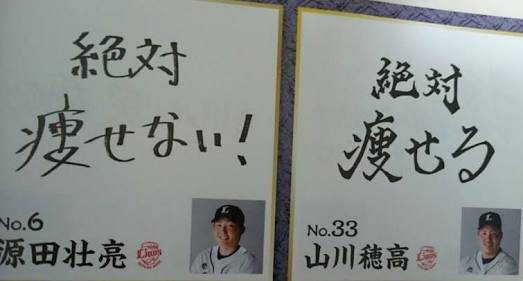 絶対
痩せない!
No.6
源田壮亮
絶対
痩せる
No.33
山川穂高